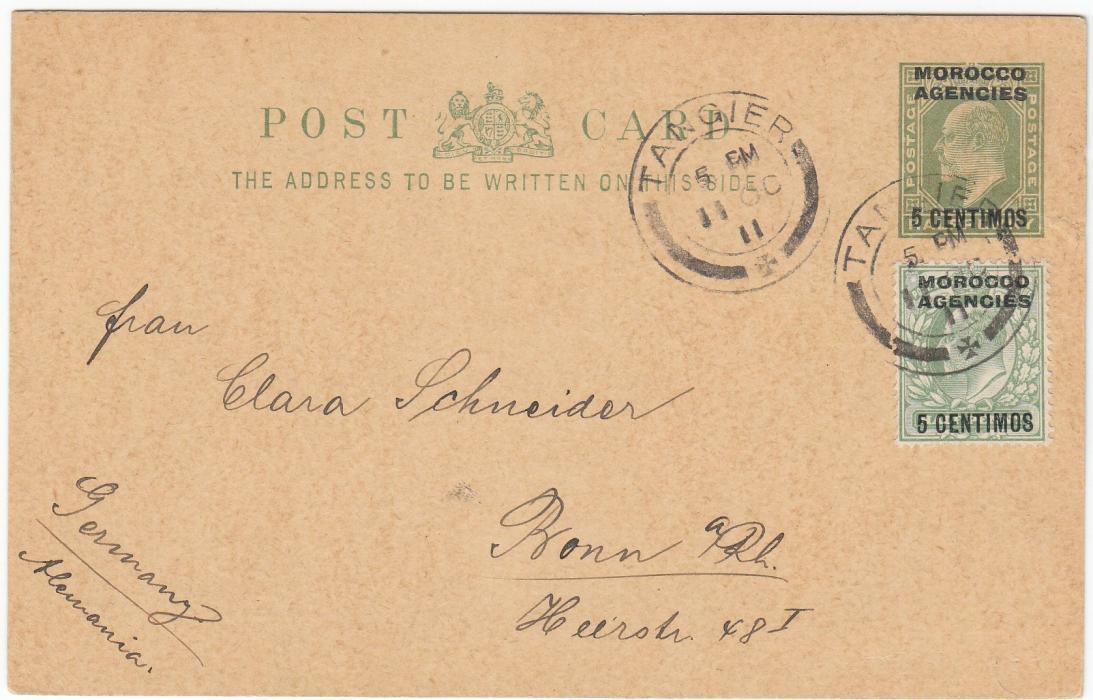 MOROCCO
AGENCIES
POSTAGE
POSTAGE
5 CENTIMOS
POST CARD
THE ADDRESS TO BE WRITTEN ON THIS SIDE
TANGIER
5 PM
11 OC
11
TANGIER
5 PM
11
MOROCCO
AGENCIES
5 CENTIMOS
Frau
Clara Schneider
Bonn a/Rh.
Heerstr. 48 I
Germany
Alemania.